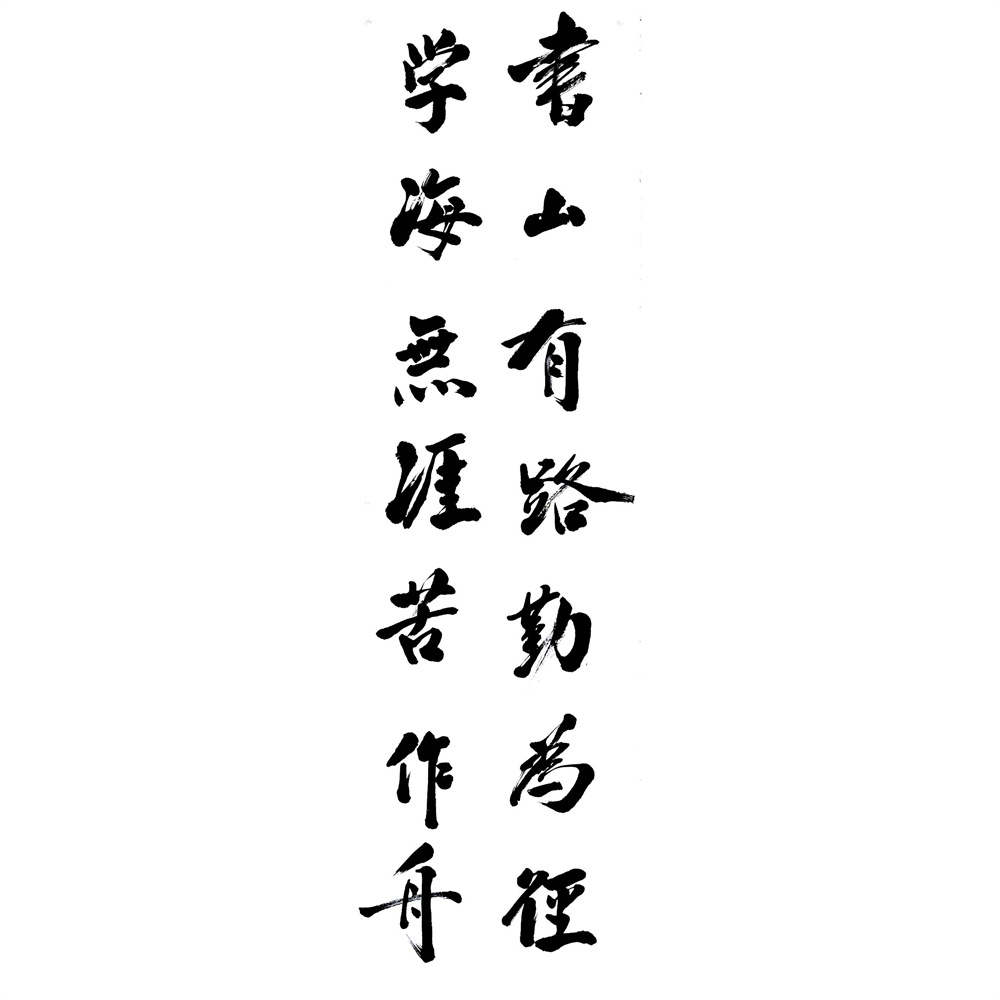 書山有路勤為徑
学海無涯苦作舟